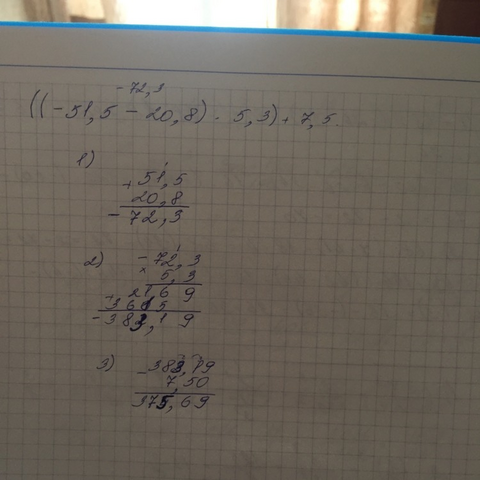 -72,3
((-51,5 - 20,8) · 5,3) + 7,5.
1)
+ 51,5
20,8
- 72,3
2) - 72,3
× 5,3
+ 2169
3615
- 383,19
3) - 383,19
7,50
375,69